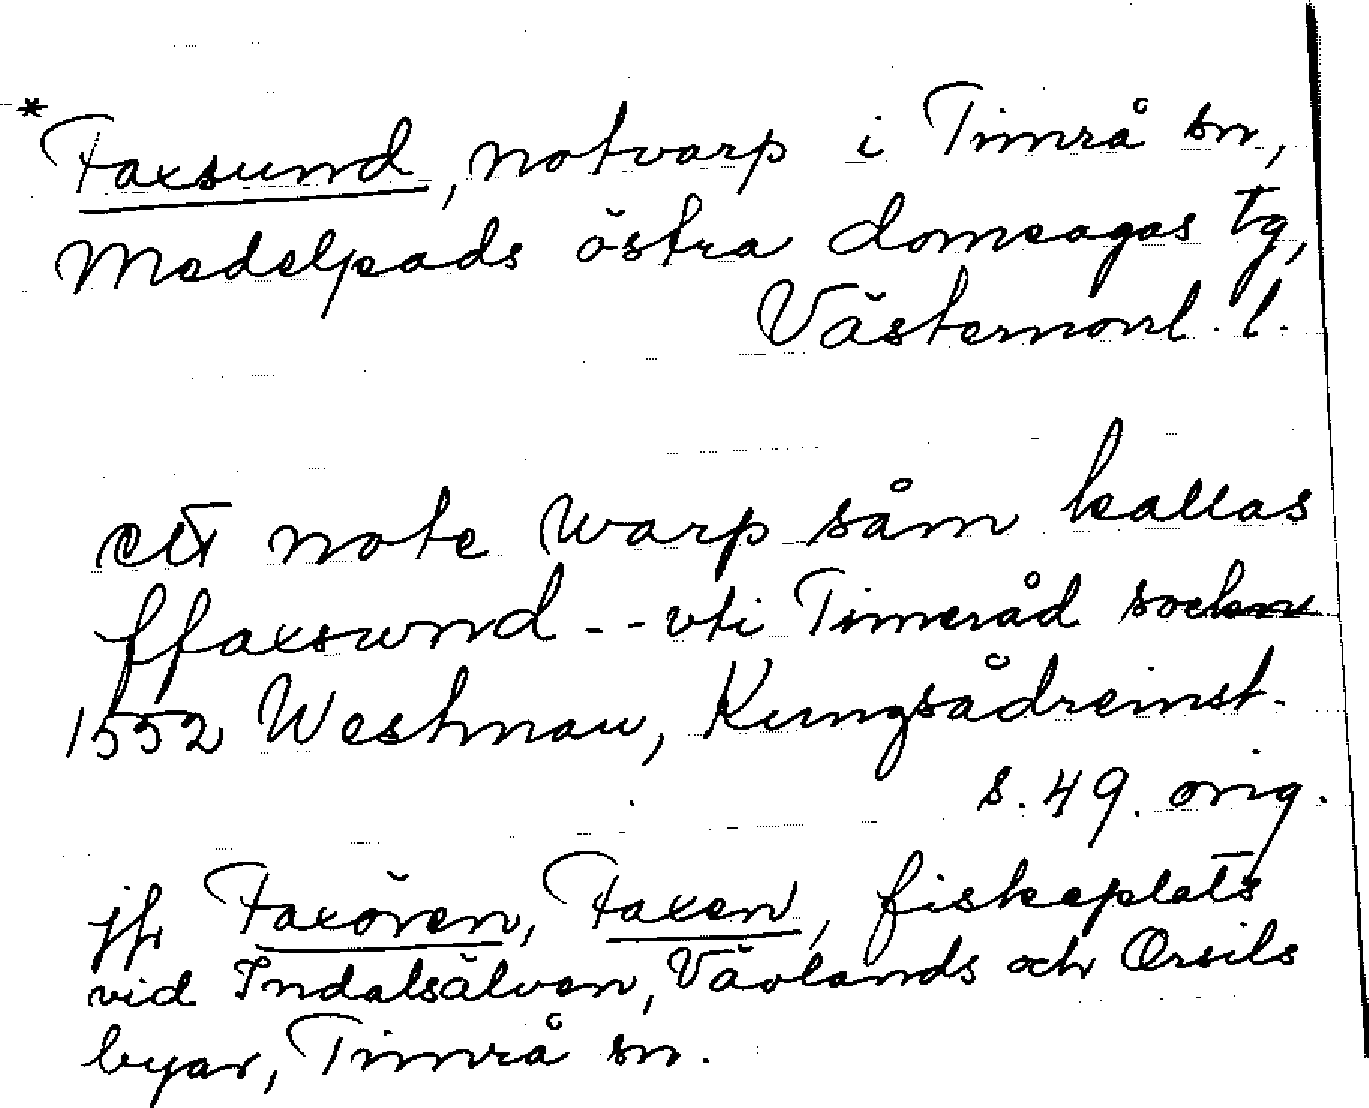 * Faxsund, notvarp i Timrå sn,
Medelpads östra domsagas tg,
Västernorrl. l.
ett note warp såm kallas
ffaxsund - - vti Timeråd sockn
1552 Westman, Kungsådreinst.
s. 49. orig.
jfr Faxören, Faxen, fiskeplats
vid Indalsälven, Vävlands och Orsils
byar, Timrå sn.